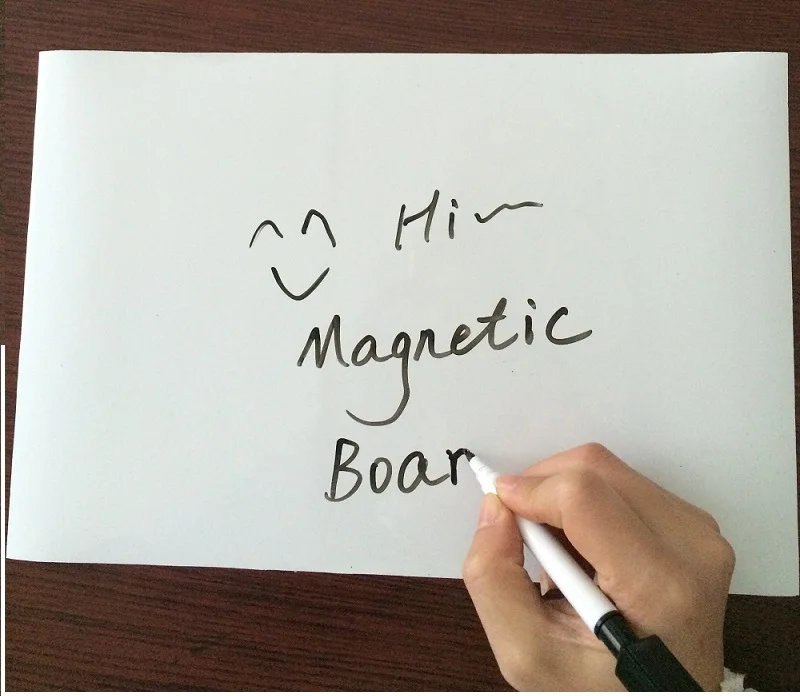 Hi~
Magnetic
Boar